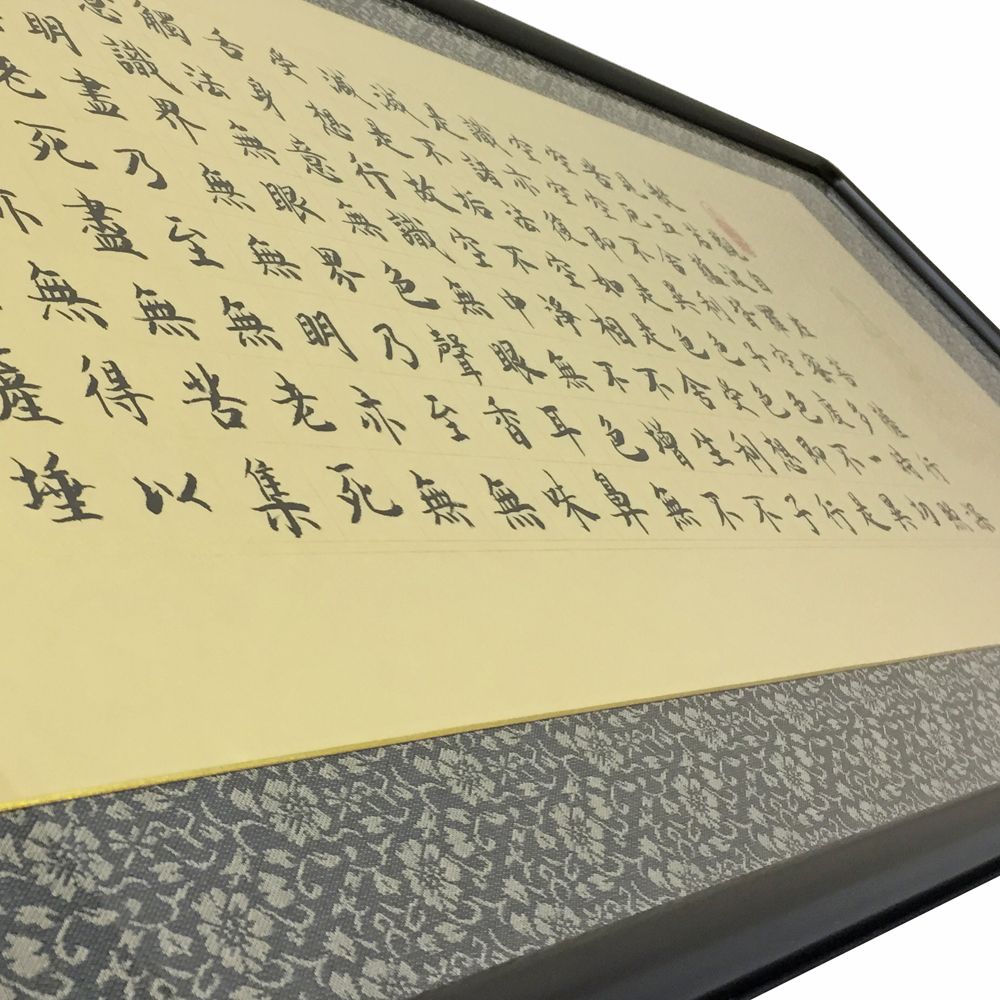 觀自在菩薩行深
般若波羅蜜多時照
見五蘊皆空度一切
苦厄舍利子色不異
空空不異色色即是
空空即是色受想行
識亦復如是舍利子
是諸法空相不生不
滅不垢不淨不增不
減是故空中無色無
受想行識無眼耳鼻
舌身意無色聲香味
觸法無眼界乃至無
意識界無無明亦無
明盡乃至無老死
老死盡無苦集
亦無得以
薩埵